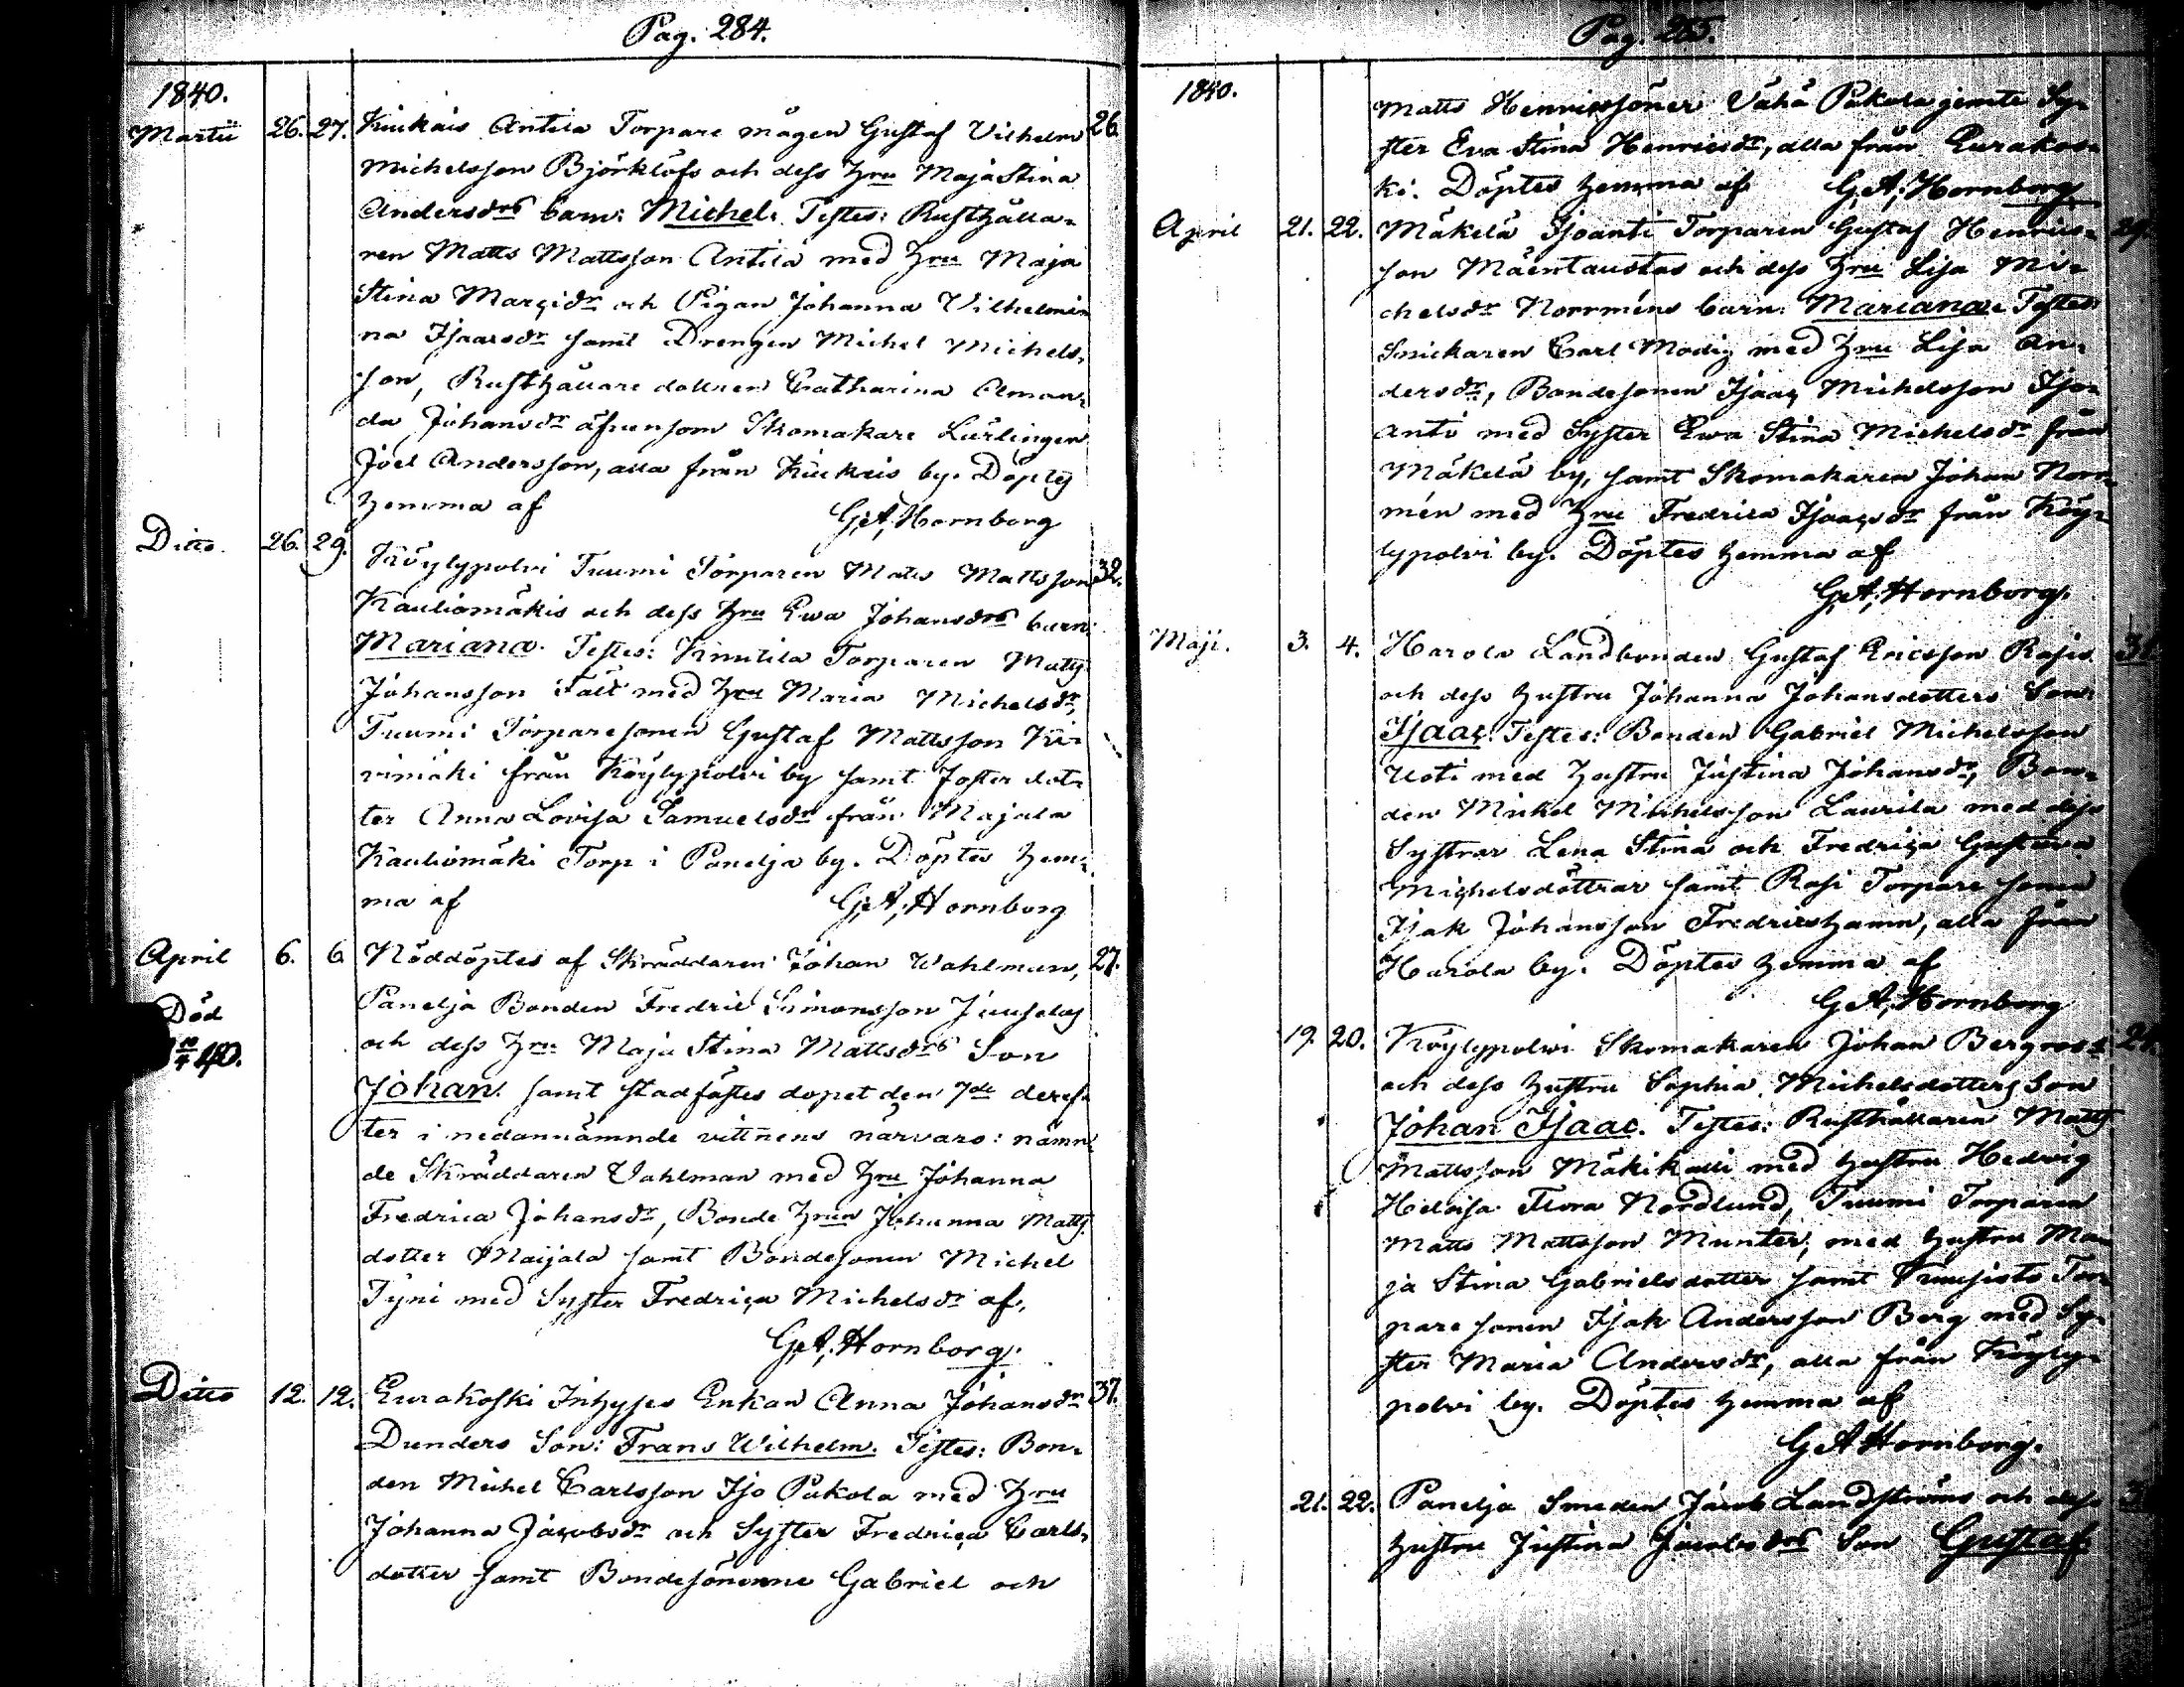 Pag. 284.
1840.
Martii 26. 27. Kiukais Antila Torpare mågen Gustaf Vilhelm 26.
Michelsson Björklöfs och dess Hru Maja Stina
Andersdrs barn: Michel. Testes: Rusthålla-
ren Matts Mattsson Antila med Hru Maja
Stina Marcidr och Pigan Johanna Vilhelmi
na Isaacsdr samt Drengen Michel Michels-
son, Rusthållare dottren Catharina Aman-
da Johansdr äfvensom Skomakare Lärlingen
Joel Andersson, alla från Kiukais by. Döptes
hemma af G.A. Hornborg
Ditto. 26. 29. Köylypolvi Tuumi Torparen Matts Mattsson 32.
Kauliomäkis och dess Hru Ewa Johansdrs barn:
Mariana. Testes: Knutila Torparen Matts
Johansson Fält med Hru Maria Michelsdr,
Tuumi Torparesonen Gustaf Mattsson Ki-
vimäki från Köylypolvi by samt Foster dot-
ter Anna Lovisa Samuelsdr från Majala
Kauliomäki Torp i Panelja by. Döptes hem-
ma af G.A. Hornborg
April 6. 6. Nöddöptes af Skräddaren Johan Wahlman, 27.
Panelja Bonden Fredric Simonsson Juuselas
Död
och dess Hru Maja Stina Mattsdrs Son
40.
Johan. samt stadfästes dopet den 7de deref-
ter i nedannämnde vittnens närvaro: nämn
de Skräddaren Vahlman med Hru Johanna
Fredrica Johansdr, Bonde Hrun Johanna Matts
dotter Maijala samt Bondesonen Michel
Tyni med Syster Fredrica Michelsdr af,
G.A. Hornborg.
Ditto 12. 12. Eurakoski Inhyses Enkan Anna Johansdr 37.
Dunders Son: Frans Wilhelm. Testes: Bon-
den Michel Carlsson Iso Pukola med Hru
Johanna Jacobsdr och Syster Fredrica Carls-
dotter samt Bondesönerne Gabriel och
Pag. 285.
1840.
Matts Henrikssöner Vähä Pukola jemte Sy-
ster Eva Stina Henricsdr, alla från Eurakos-
ki. Döptes hemma af G.A. Hornborg.
April 21. 22. Mäkelä Isoanti Torparen Gustaf Henrics- 29.
son Mäentaustas och dess Hru Lisa Mi-
chelsdr Norrméns barn: Mariana. Testes:
Snickaren Carl Modig med Hru Lisa An-
dersdr, Bondesonen Isaac Michelsson Iso-
anti med Syster Ewa Stina Michelsdr från
Mäkelä by, samt Skomakaren Johan Norr-
mén med Hru Fredrica Isaacsdr från Köy-
lypolvi by. Döptes hemma af
G.A. Hornborg.
Maji. 3. 4. Harola Landbonden Gustaf Ericsson Rasis
och dess hustru Johanna Johansdotters Son:
Isaac. Testes: Bonden Gabriel Michelsson
Uoti med hustru Justina Johansdr, Bon-
den Mickel Michelsson Laurila med dess
Systrar Lena Stina och Fredrica Gustava
Michelsdöttrar samt Rasi Torpare sonen
Isak Johansson Fredricshamn, alla från
Harola by. Döptes hemma af
G.A. Hornborg
19. 20. Köylypolvi Skomakaren Johan Bergroos
och dess hustru Sophia Michelsdotters Son
Johan Isaac. Testes: Rusthållaren Matts
Mattsson Mäkikalli med hustru Hedvig
Heloisa Flora Nordlund, Tuumi Torparen
Matts Mattsson Munter, med hustru Ma-
ja Stina Gabrielsdotter samt Tor-
pare sonen Isak Andersson Berg med Sy-
ster Maria Andersdr, alla från Köyly-
polvi by. Döptes hemma af
G A Hornborg.
21. 22. Panelja Smeden Jacob Landströms och dess
hustru Justina Jacobsdrs Son Gustaf